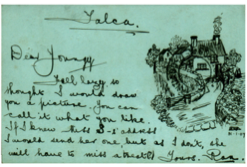 Talca.
Dear Young
Fell lazy so
thought I would draw
you a picture. You can
call it what you like.
If I knew Miss address
I would send her one, but as I don't, she
will have to miss a
Yours. Ray.